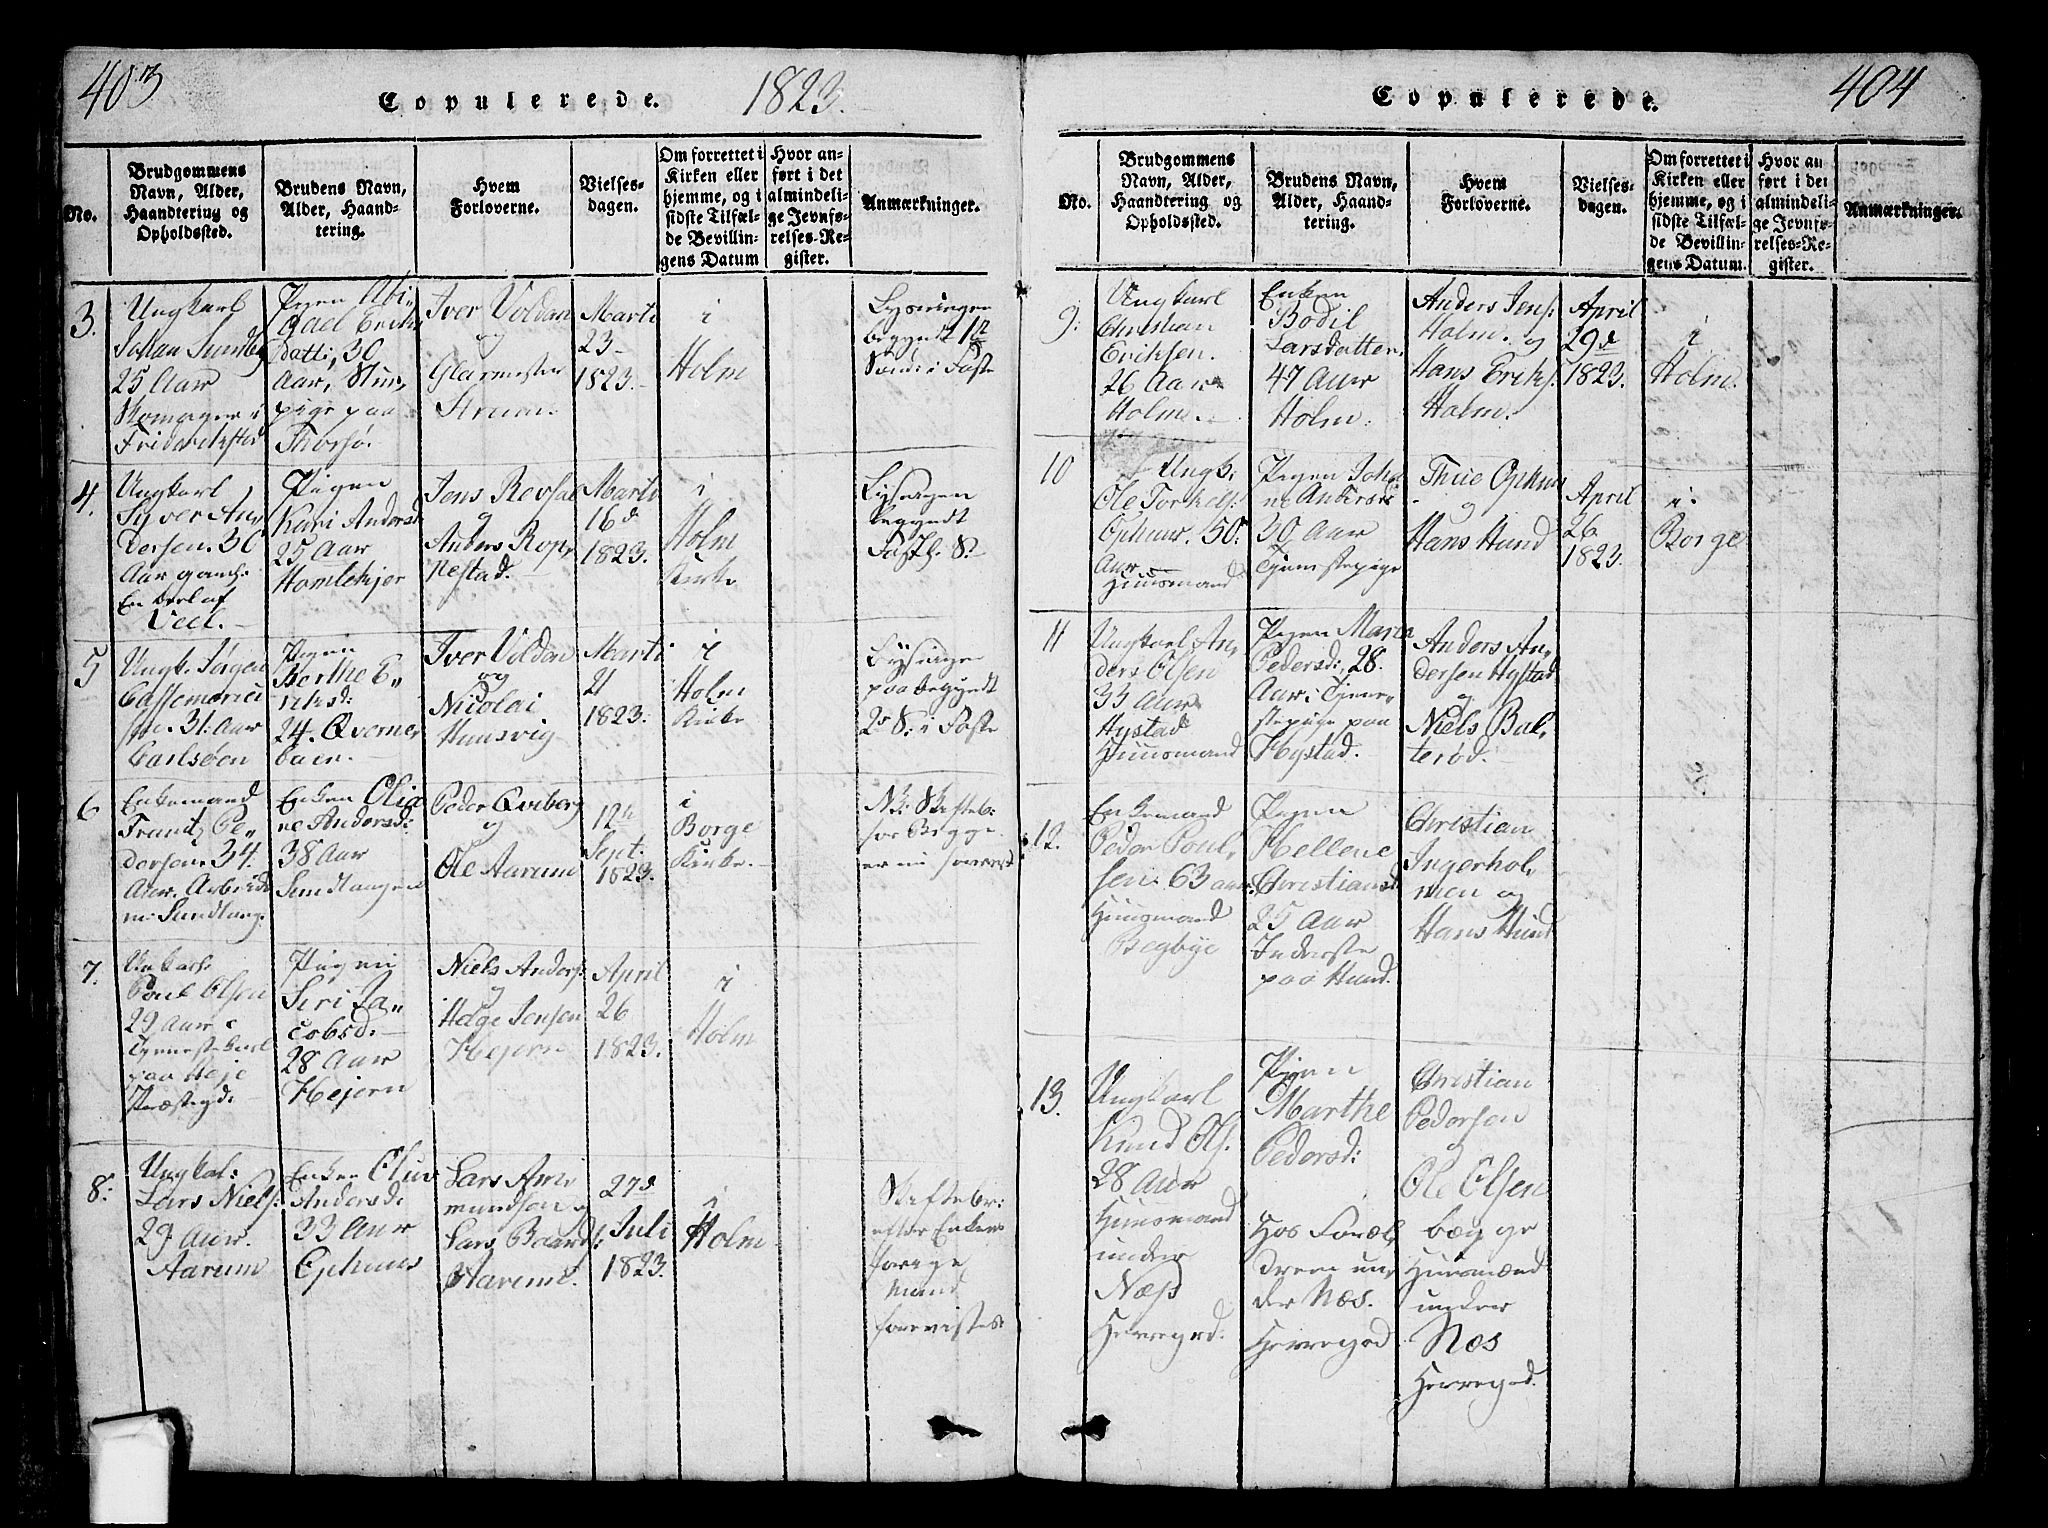 403
Copulerede. 1823.
No.
Brudgommens Navn, Alder, Haandtering og Opholdssted.
Brudens Navn, Alder, Haandtering.
Hvem Forloverne.
Vielsesdagen.
Om forrettet i Kirken eller hjemme, og i sidste Tilfælde Bevillingens Datum
Hvor anført i det almindelige Jevnførelses-Register.
Anmærkninger.
3.
Ungkarl
Johan
25 Aar
i
Pigen Abi„
gael Eriks
datt; 30
Aar,
pige paa
Thorsø.
Iver Voldan
og
Glarmester
Marti
23
1823.
i
Holm
Lysningen
begyndt 1te
Sønd: i Faste
4.
Ungkarl
Syver An„
dersen. 30
Aar
En Deel af
Veel.
Pigen
Kari Andersd
25 Aar
Jens Revhal
og
Anders Rop„
nestad.
Marti
16de
1823.
i
Holm
Kirke
Lysningen
begyndt
Fastl. S.
5
Ungk. Jørgen
31. Aar
Carlsöen
Pigen
Berthe E„
riksd:
24. Qverne„
baen.
Iver Voldan
og
Nicolai
Huusvig
Marti
21
1823.
i
Holm
Kirke
Lysningen
paabegyndt
2de S: i Faste
6
Enkemand
Frantz Pe„
dersen. 34.
Aar, Arbeids
m: Sundløng.
Enken Olia„
ne Andersd:
38 Aar
Peder Qviberg
og
Ole Aarum
12te
Sept.
1823.
i
Borge
Kirke.
Skifteb:
for Begge
7.
Poul Olsen
29 Aar
Tjenestekarl
paa
Præstegd.
Pigen
Siri Ja„
cobsd:
28 Aar
Hejern
Niels Anders:
og
Helge Jensen
Hejern
April
26
1823.
i
Holm
8.
Ungkal:
Lars Niels:
29 Aar.
Aarum
Enken Oliv
Andersd:
33 Aar
Ophuus
Lars Am„
mundsen og
Lars Baards:
Aarum.
27de
Juli
1823.
i
Holm
Skiftebr:
efter Enkens
forrige
Mand
forevistes.
404
Copulerede.
No.
Brudgommens Navn, Alder, Haandtering og Opholdssted.
Brudens Navn, Alder, Haandtering.
Hvem Forloverne.
Vielsesdagen.
Om forrettet i Kirken eller hjemme, og i sidste Tilfælde Bevillingens Datum.
Hvor anført i det almindelige Jevnførelses-Register.
Anmærkninger.
9:
Ungkarl
Christian
Eriksen.
26 Aar
Holm.
Enken
Bodil
Larsdatter
47 Aar
Holm.
Anders Jens:
Holm. og
Hans Eriks:
Holm.
April
29de
1823.
i
Holm.
10
Ungk:
Ole Torkels:
Ophuus. 50.
Aar
Huusmand
Pigen Joha
ne Andersd
30 Aar
Tjenestepige
Thue Ophuus
og
Hans Hund
April
26
1823.
i
Borge
11
Ungkarl An„
ders Olsen
33 Aar
Hystad
Huusmand
Pigen Maria
Pedersd: 28.
Aar: Tjene„
stepige paa
Hystad.
Anders An„
dersen Hystad
og
Niels Bal„
terød.
12.
Enkemand
Peder Poul„
sen. 63 aar
Huusmand
Begbye
Pigen
Hellene
Christiansd
25 Aar
Inderste
paa Hund.
Christian
Ingerhol„
men og
Hans Hund
13.
Ungkarl
Knud Ols.
28 Aar
Huusmand
under
Næss
Herregrd.
Pigen
Marthe
Pedersd:
Hos Foræl„
drene un„
der Næs.
Herregrd
Christian
Pedersen
og
Ole Olsen
begge
Huusmænd
under
Næs
Herregrd.